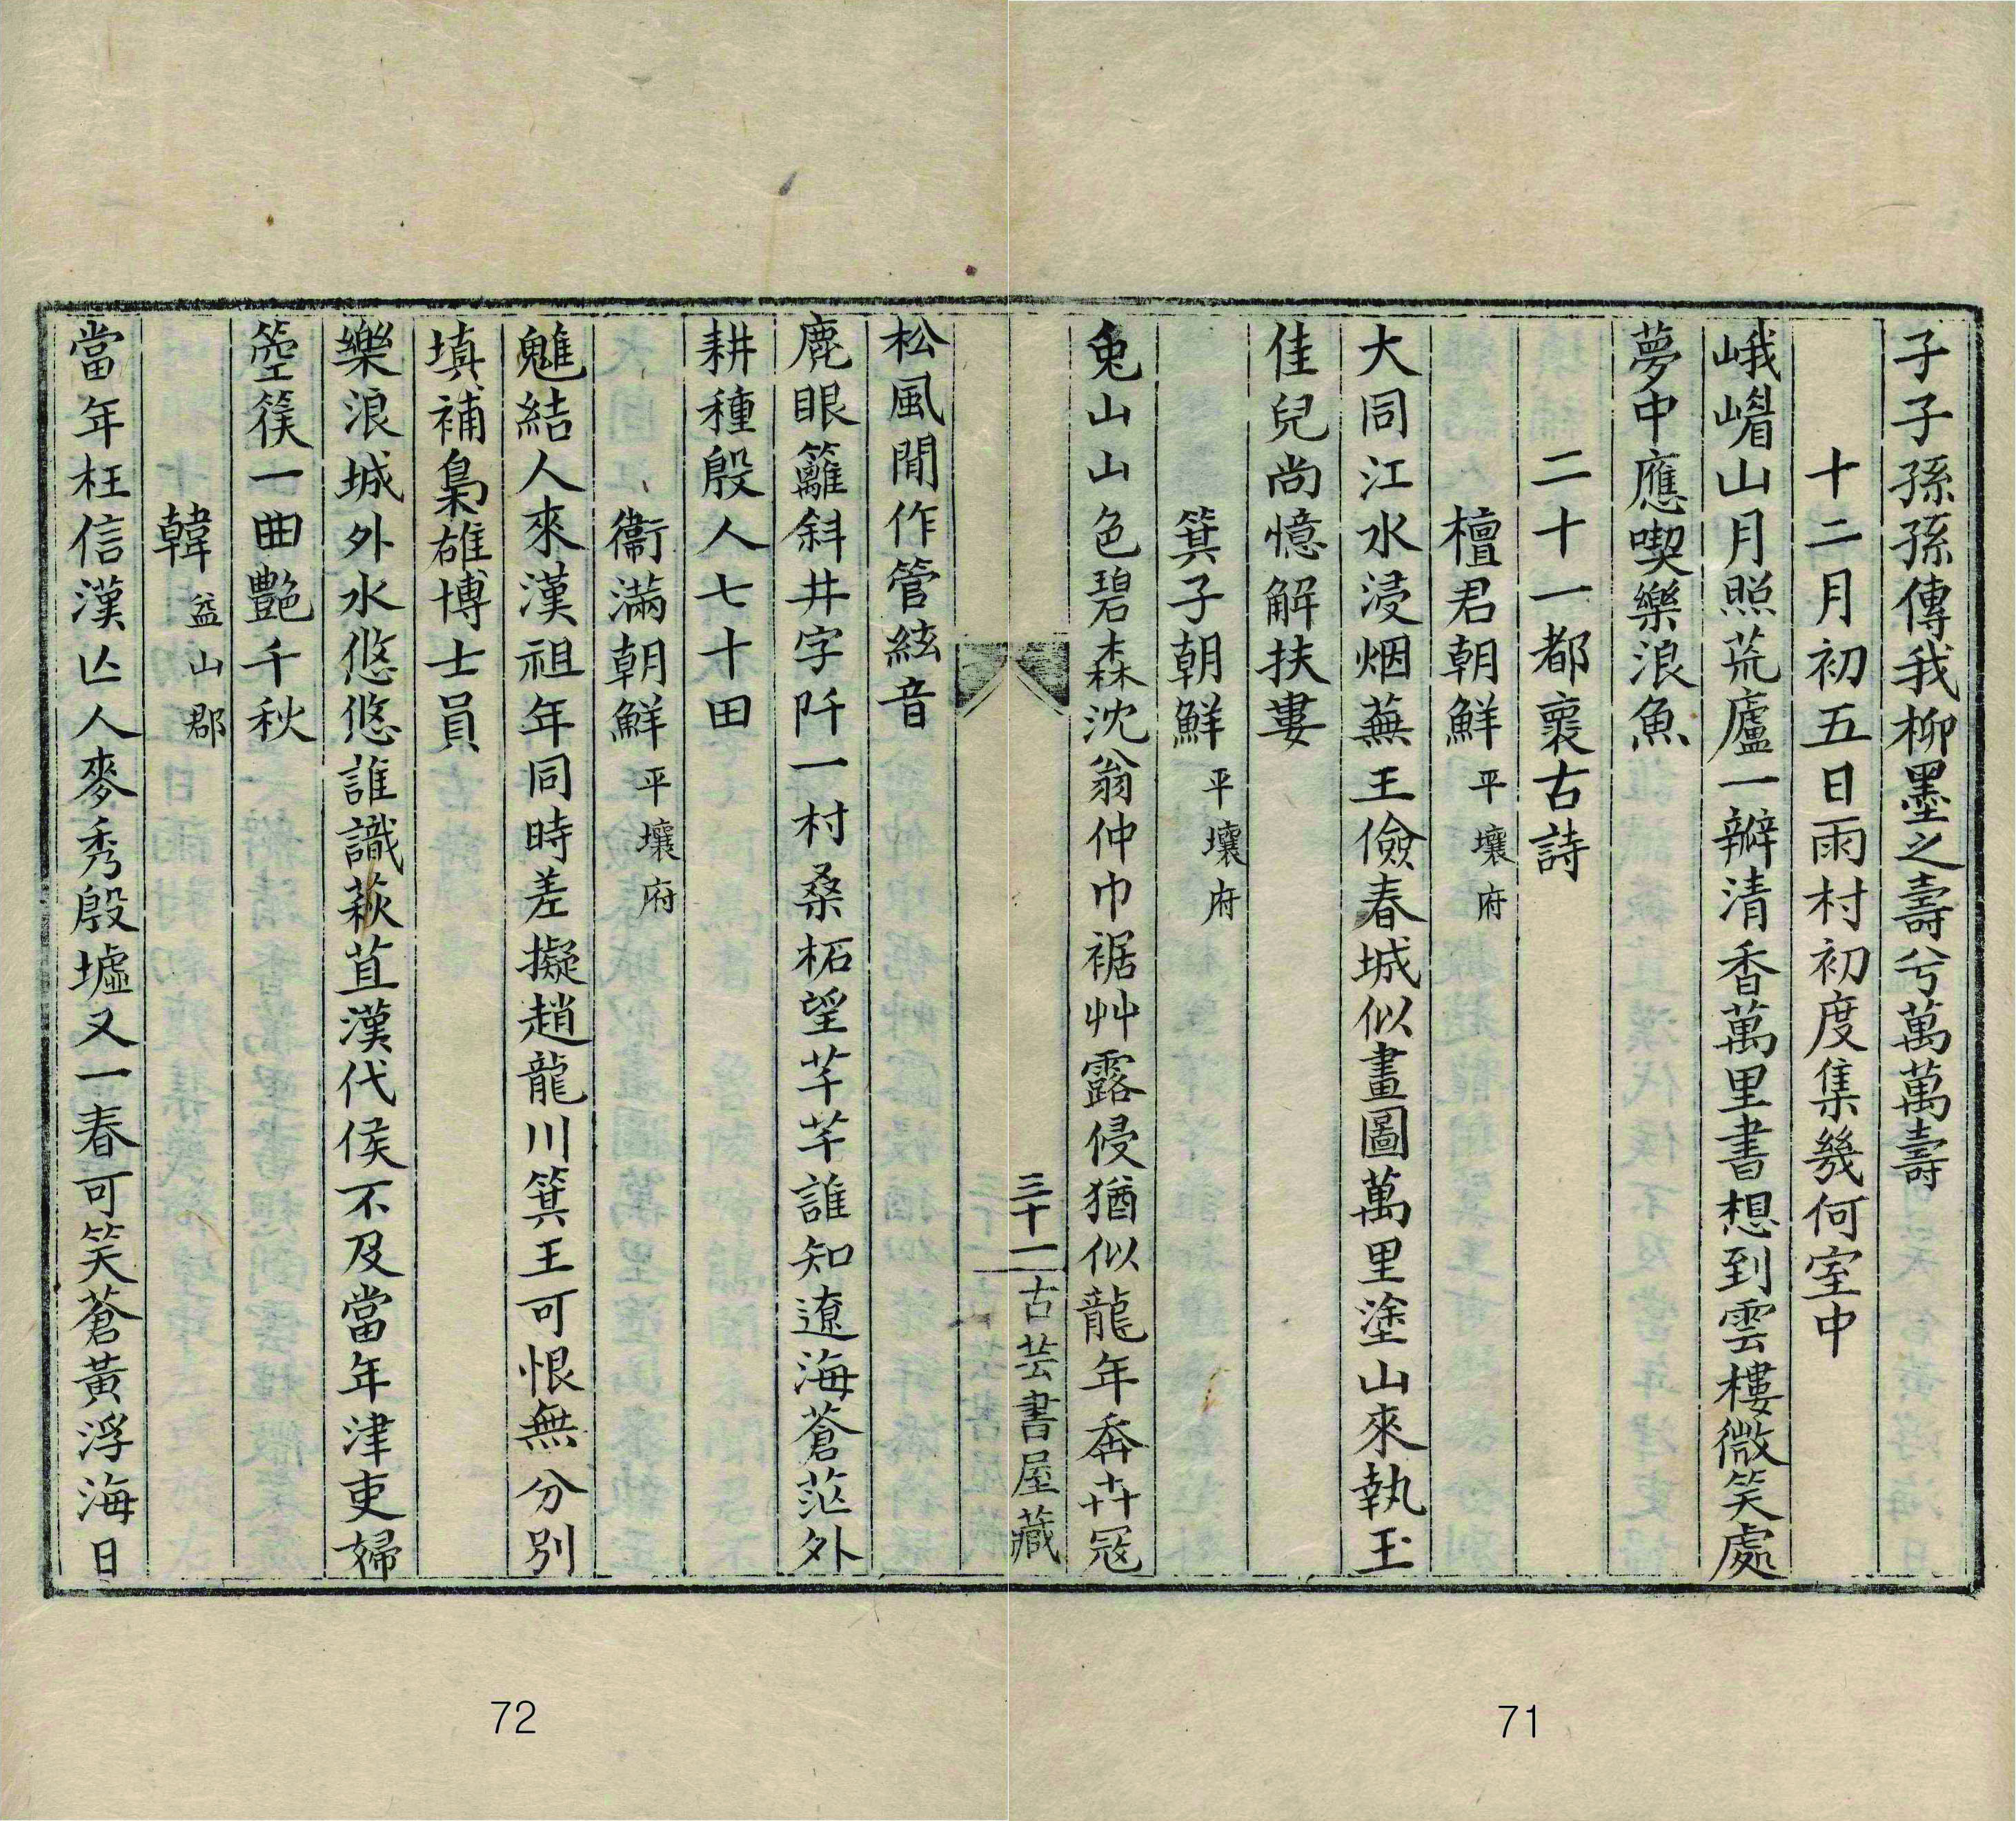 子子孫孫傳我柳墨之壽兮萬萬壽
十二月初五日雨村初度集幾何室中
峨嵋山月照荒廬一瓣清香萬里書想到雲樓微笑處
夢中應喫樂浪魚
二十一都褱古詩
檀君朝鮮 平壤府
大同江水浸烟蕪王儉春城似畫圖萬里塗山來執玉
佳兒尚憶解扶婁
箕子朝鮮 平壤府
兔山山色碧森沈翁仲巾裾艸露侵猶似龍年奔卉冦
三十一 古芸書屋藏
松風閒作管絃音
鹿眼籬斜井字阡一村桑柘望芊芊誰知遼海蒼茫外
耕種殷人七十田
衞滿朝鮮 平壤府
魋結人來漢祖年同時差擬趙龍川箕王可恨無分別
塡補梟雄博士員
樂浪城外水悠悠誰識萩苴漢代侯不及當年津吏婦
箜篌一曲艷千秋
韓 益山郡
當年枉信漢亾人麥秀殷墟又一春可笑蒼黃浮海日
72
71